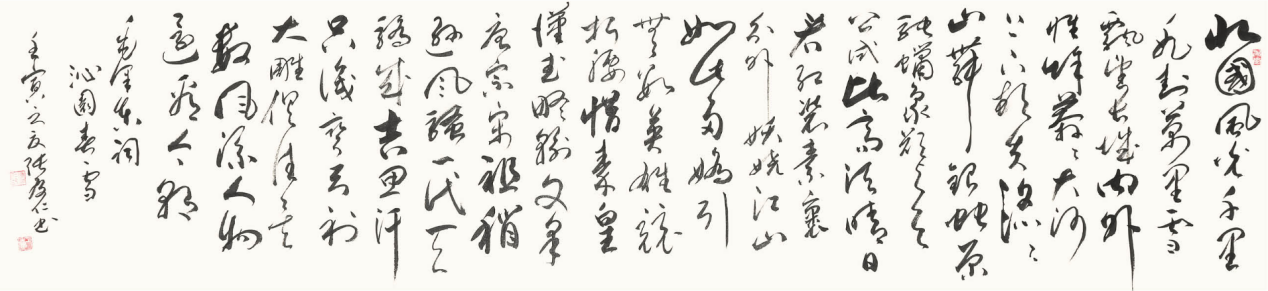 北國風光千里
冰封萬里雪
飄望長城內外
惟餘莽々大河
上下頓失滔々
山舞銀蛇原
馳蠟象欲與天
公試比高須晴日
看紅裝素裹
分外妖嬈江山
如此多嬌引
無數英雄競
折腰惜秦皇
漢武略輸文采
唐宗宋祖稍
遜風騷一代天
驕成吉思汗
只識彎弓射
大雕俱往矣
數風流人物
還看今朝
毛澤東詞
沁園春雪
壬寅之夏張仁書